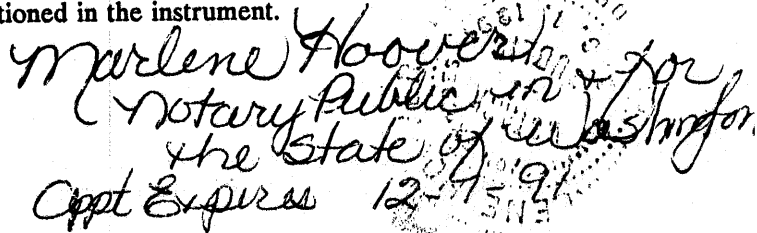 tioned in the instrument.
Marlene Hoover
Notary Public in & for
the State of Washington
Appt Expires 12-9-91